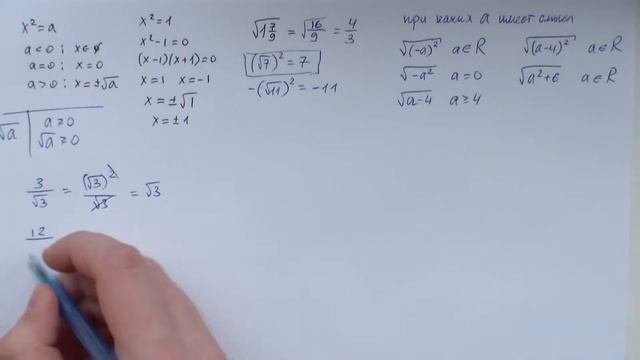 x² = a
a < 0 : x ∈ ∅
a = 0 : x = 0
a > 0 : x = ±√a
√a | a ≥ 0
√a ≥ 0
3/√3 = (√3)²/√3 = √3
12
x² = 1
x² - 1 = 0
(x - 1)(x + 1) = 0
x = 1 x = -1
x = ±√1
x = ±1
√1 7/9 = √16/9 = 4/3
(√7)² = 7
-(√11)² = -11
при каких a имеет смысл
√(-a)² a ∈ R √(a-4)² a ∈ R
√-a² a = 0 √a²+6 a ∈ R
√a-4 a ≥ 4